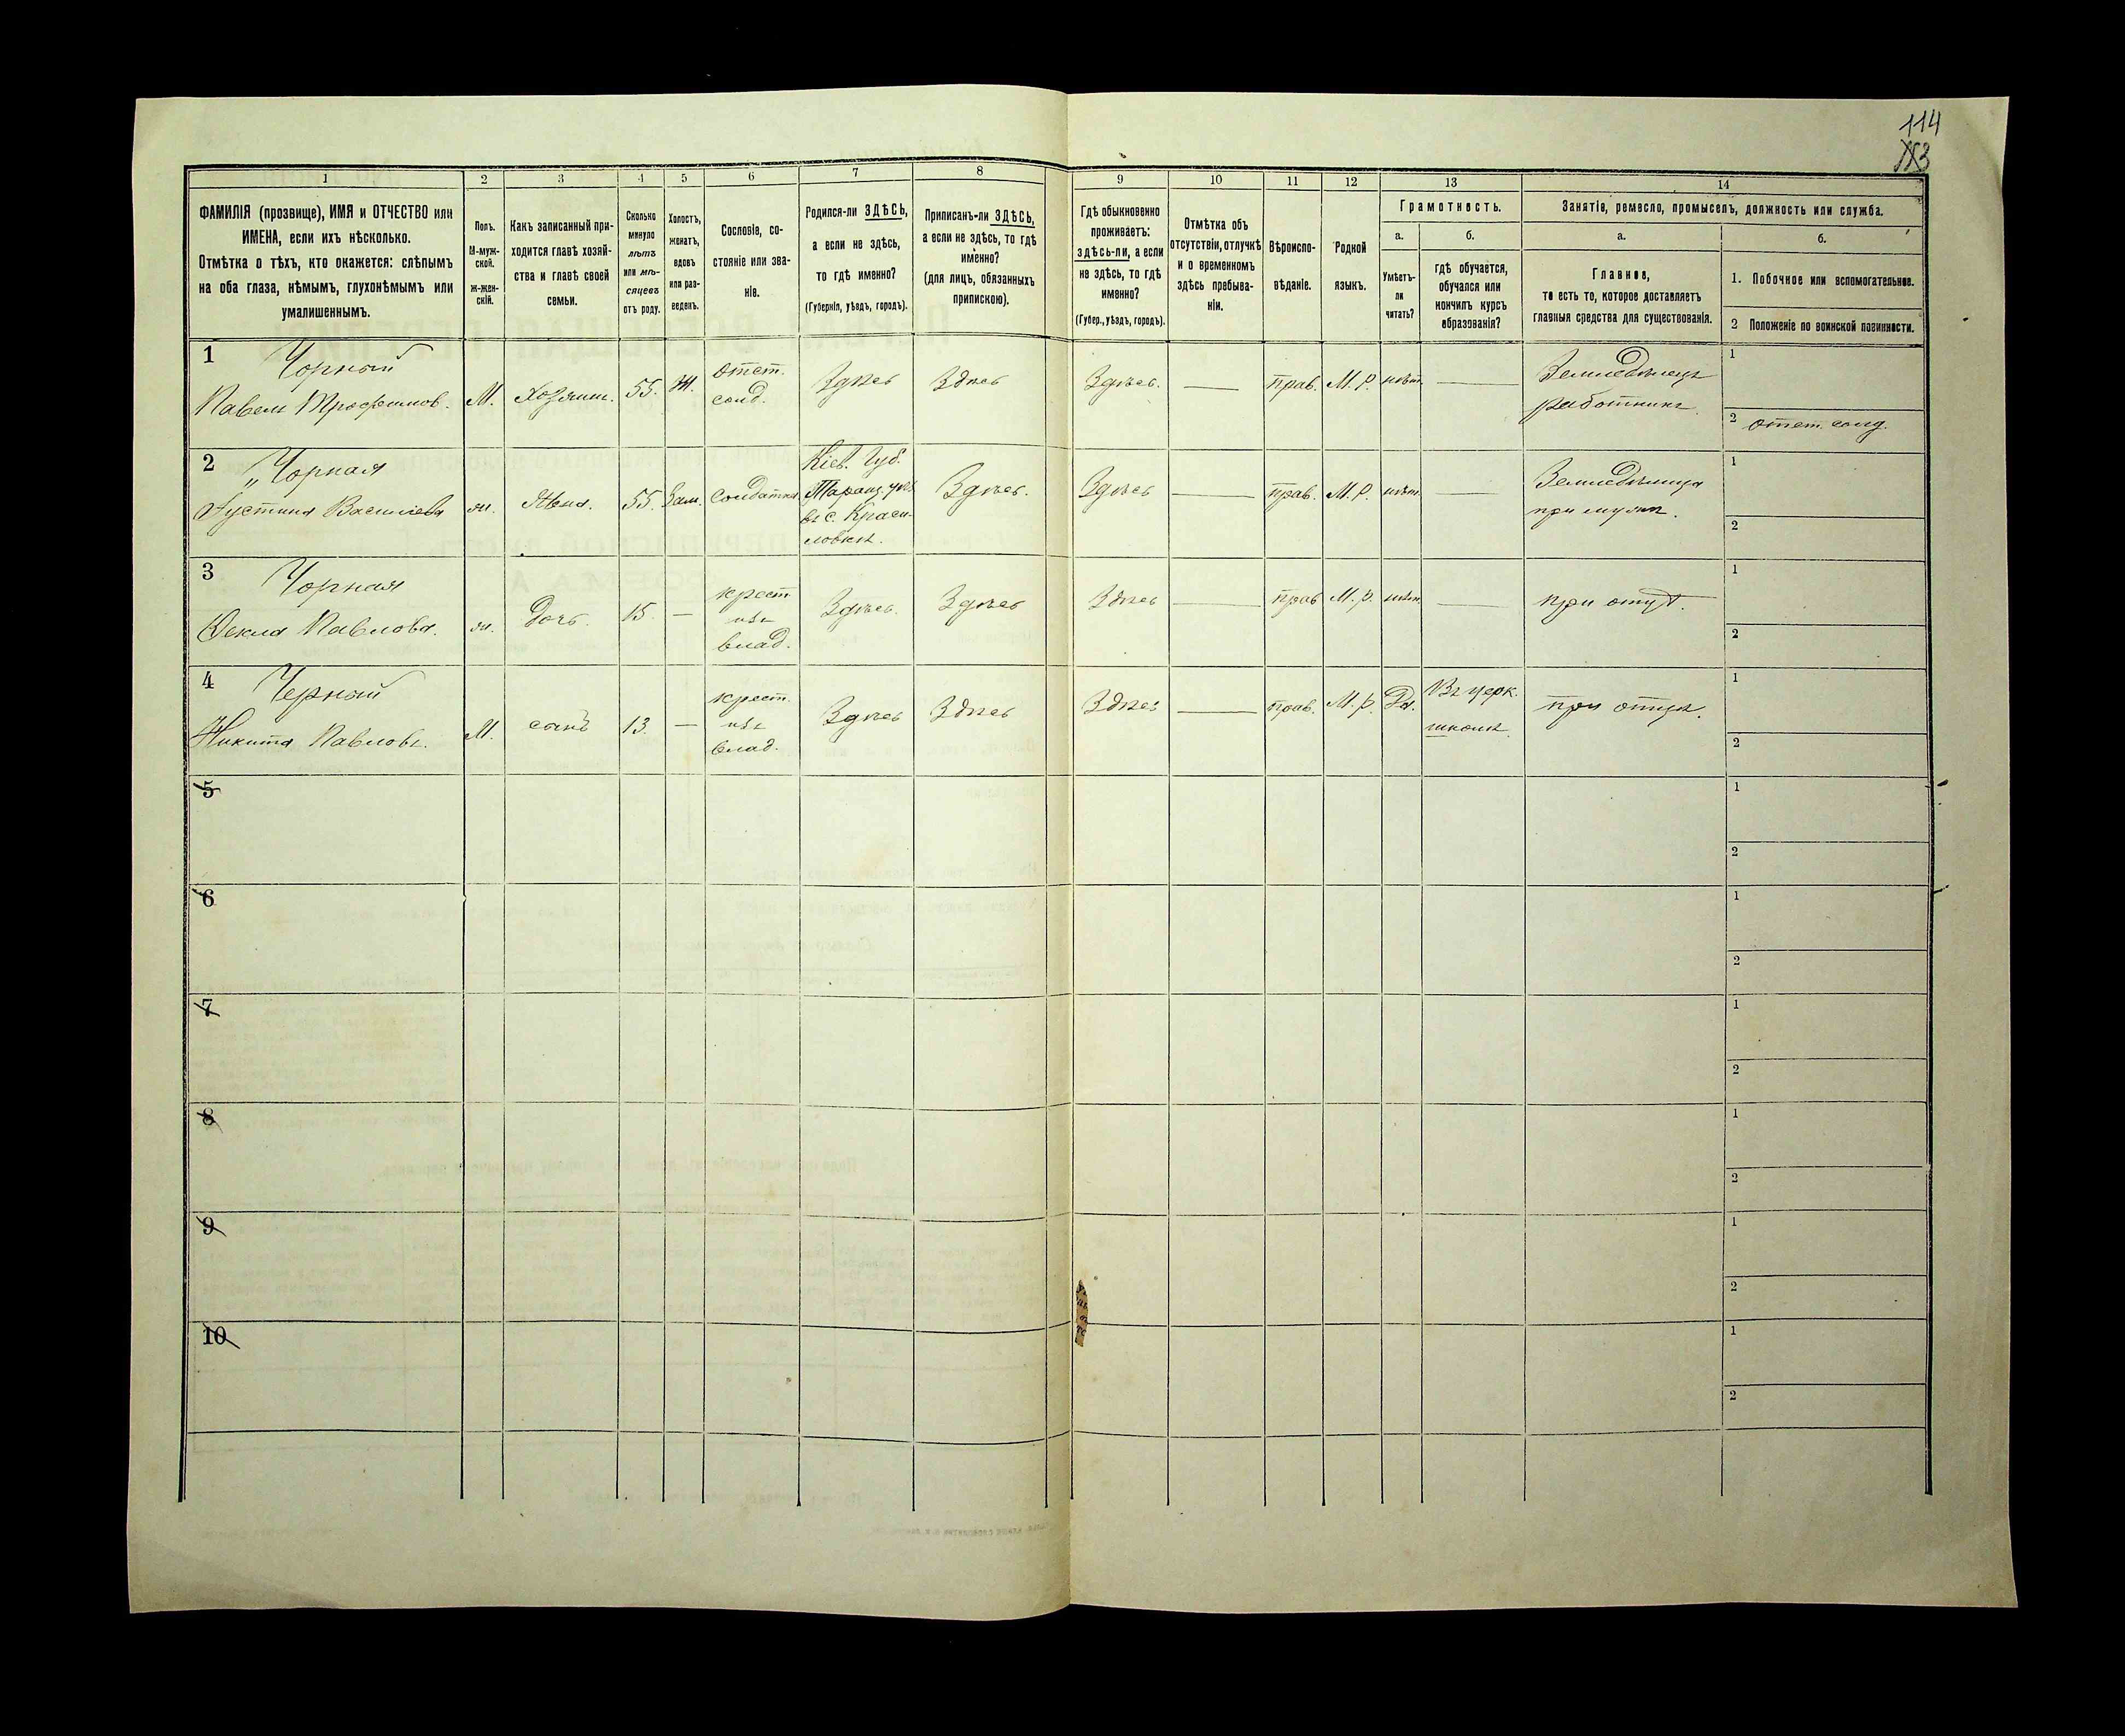 114
113
1
2
3
4
5
6
7
8
9
10
11
12
13
14
ФАМИЛІЯ (прозвище), ИМЯ и ОТЧЕСТВО или
ИМЕНА, если ихъ нѣсколько.
Отмѣтка о тѣхъ, кто окажется: слѣпымъ
на оба глаза, нѣмымъ, глухонѣмымъ или
умалишеннымъ.
Полъ.
М-муж-
ской.
ж-жен-
скій.
Какъ записанный при-
ходится главѣ хозяй-
ства и главѣ своей
семьи.
Сколько
минуло
лѣтъ
или мѣ-
сяцевъ
отъ роду.
Холостъ,
женатъ,
вдовъ
или раз-
веденъ.
Сословіе, со-
стояніе или зва-
ніе.
Родился-ли ЗДѢСЬ,
а если не здѣсь,
то гдѣ именно?
(Губернія, уѣздъ, городъ).
Приписанъ-ли ЗДѢСЬ,
а если не здѣсь, то гдѣ
именно?
(для лицъ, обязанныхъ
припискою).
Гдѣ обыкновенно
проживаетъ:
здѣсь-ли, а если
не здѣсь, то гдѣ
именно?
(Губер., уѣздъ, городъ).
Отмѣтка объ
отсутствіи, отлучкѣ
и о временномъ
здѣсь пребыва-
ніи.
Вѣроиспо-
вѣданіе.
Родной
языкъ.
Грамотность.
а.
Умѣетъ-
ли
читать?
б.
гдѣ обучается,
обучался или
кончилъ курсъ
образованія?
Занятіе, ремесло, промыселъ, должность или служба.
а.
Главное,
то есть то, которое доставляетъ
главныя средства для существованія.
б.
1. Побочное или вспомогательное.
2 Положеніе по воинской повинности.
1 Чорный
Павелъ Трофимов.
М.
Хозяин.
55.
Ж.
отст.
солд.
Здѣсь
Здѣсь
Здѣсь.
прав.
М. Р.
нѣт.
Земледѣлецъ
работникъ.
1
2 отст. солд.
2 Чорная
Іустина Василіева
ж.
Жена.
55.
Зам.
Солдатка
Кіев. Губ.
Таращ. уѣз.
въ с. Краси-
ловкѣ.
Здѣсь.
Здѣсь
прав.
М. Р.
нѣт.
Земледѣлица
при мужѣ.
1
2
3 Чорная
Ѳекла Павлова.
ж.
Дочь.
15.
крест.
изъ
влад.
Здѣсь.
Здѣсь
Здѣсь
прав
М. р.
нѣт.
при отцѣ.
1
2
4 Черный
Никита Павловъ.
М.
сынъ
13.
крест.
изъ
влад.
Здѣсь
Здѣсь
Здѣсь
прав.
М. р.
Да.
Въ церк.
школѣ.
при отцѣ.
1
2
5
1
2
6
1
2
7
1
2
8
1
2
9
1
2
10
1
2